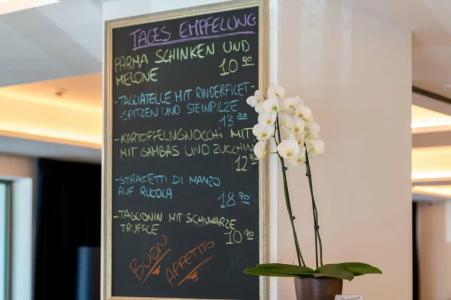 TAGES EMPFELUNG
PARMA SCHINKEN UND
MELONE 10.90
- TAGLIATELLE MIT RINDERFILET-
SPITZEN UND STEINPILZE
13.90
- KARTOFFELNGNOCCHI MIT
MIT GAMBAS UND ZUCCHINI
12.50
- STRACETTI DI MANZO
AUF RUCOLA
18.90
- TAGLIONIN MIT SCHWARZE
TRUFFLE 10.90
BUON
APPETITO